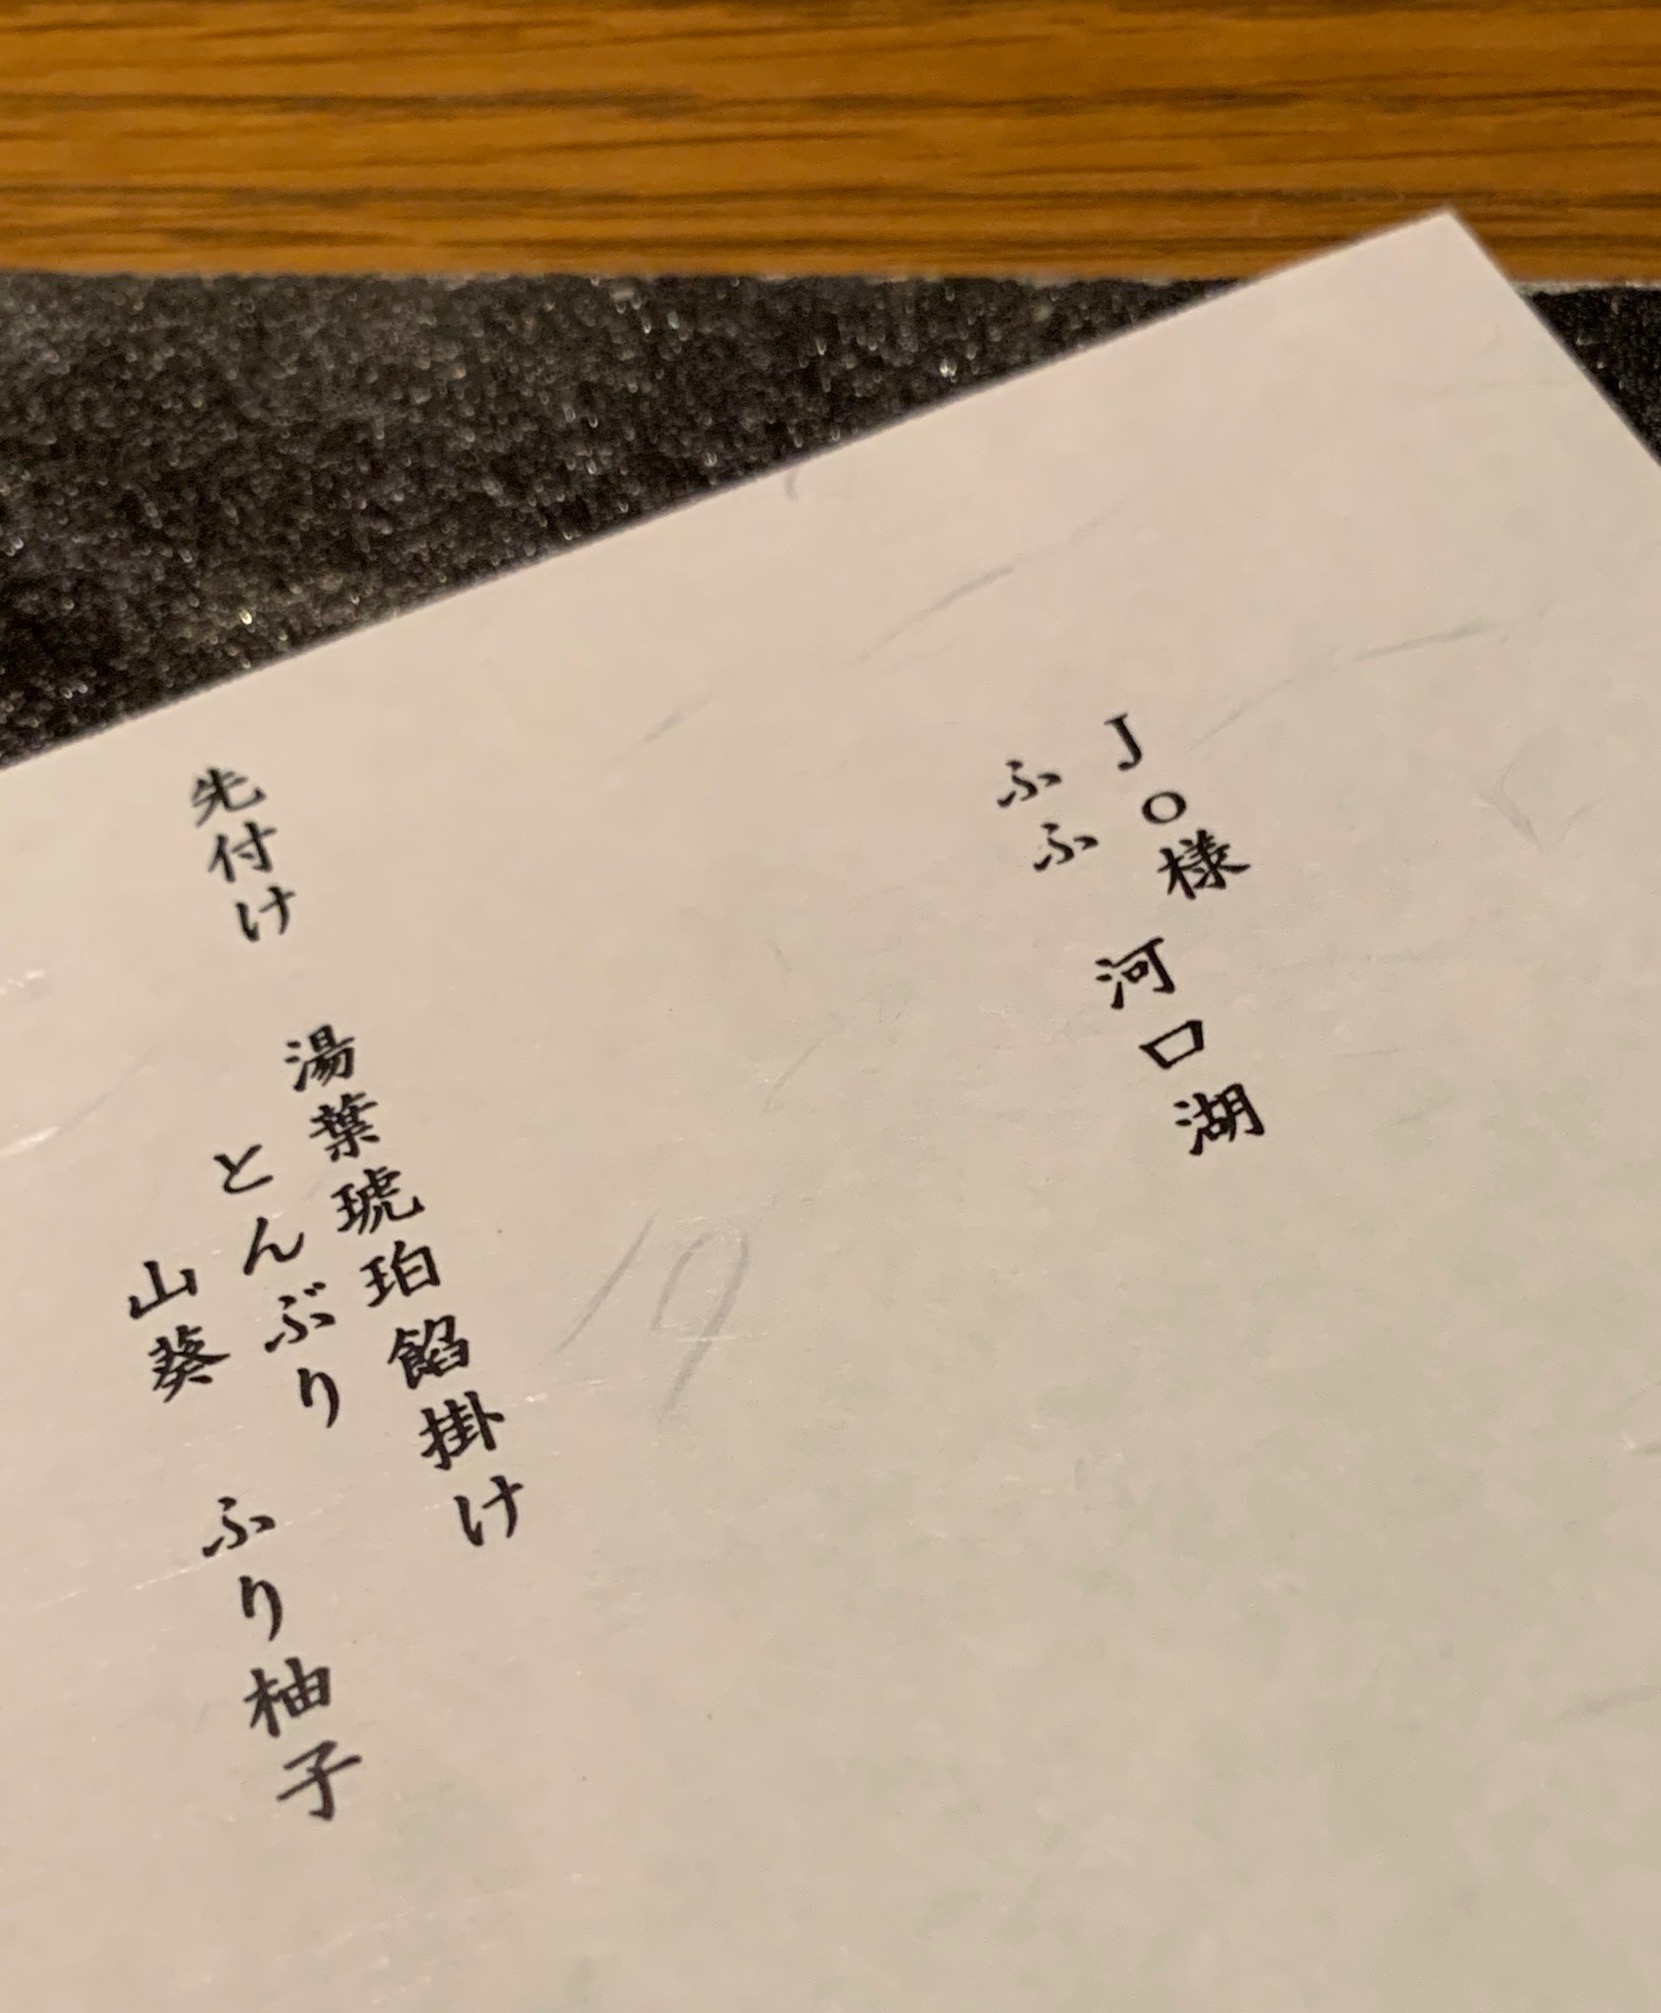 Jo様
ふふ 河口湖
先付け 湯葉琥珀餡掛け
とんぶり
山葵 ふり柚子